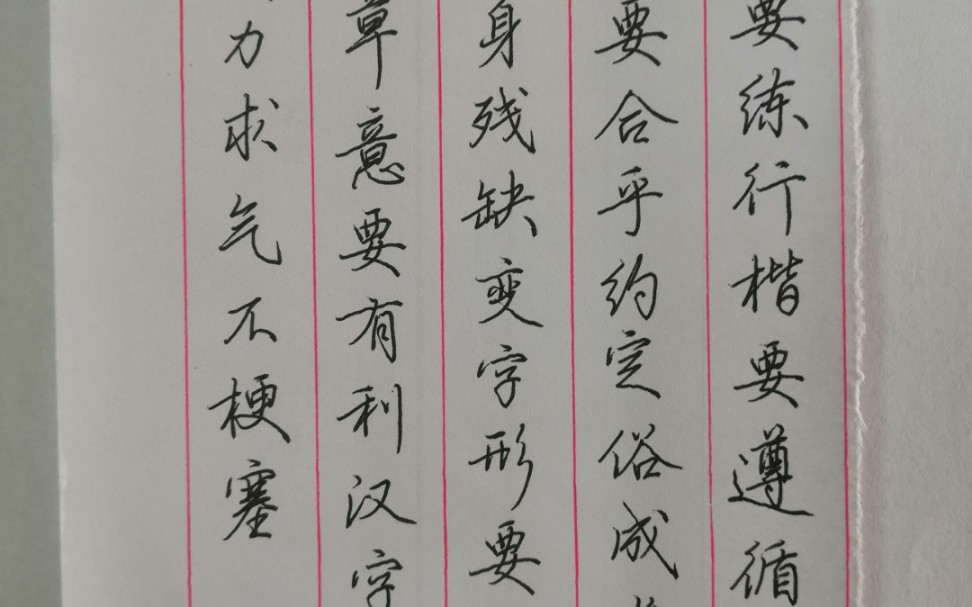 要练行楷要遵循
要合乎约定俗成
身残缺变字形要
草意要有利汉字
力求气不梗塞